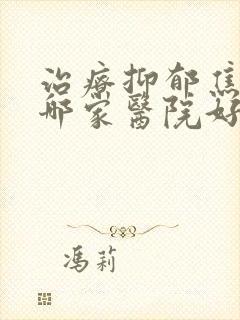 治療抑郁焦
哪家醫院好
馮莉